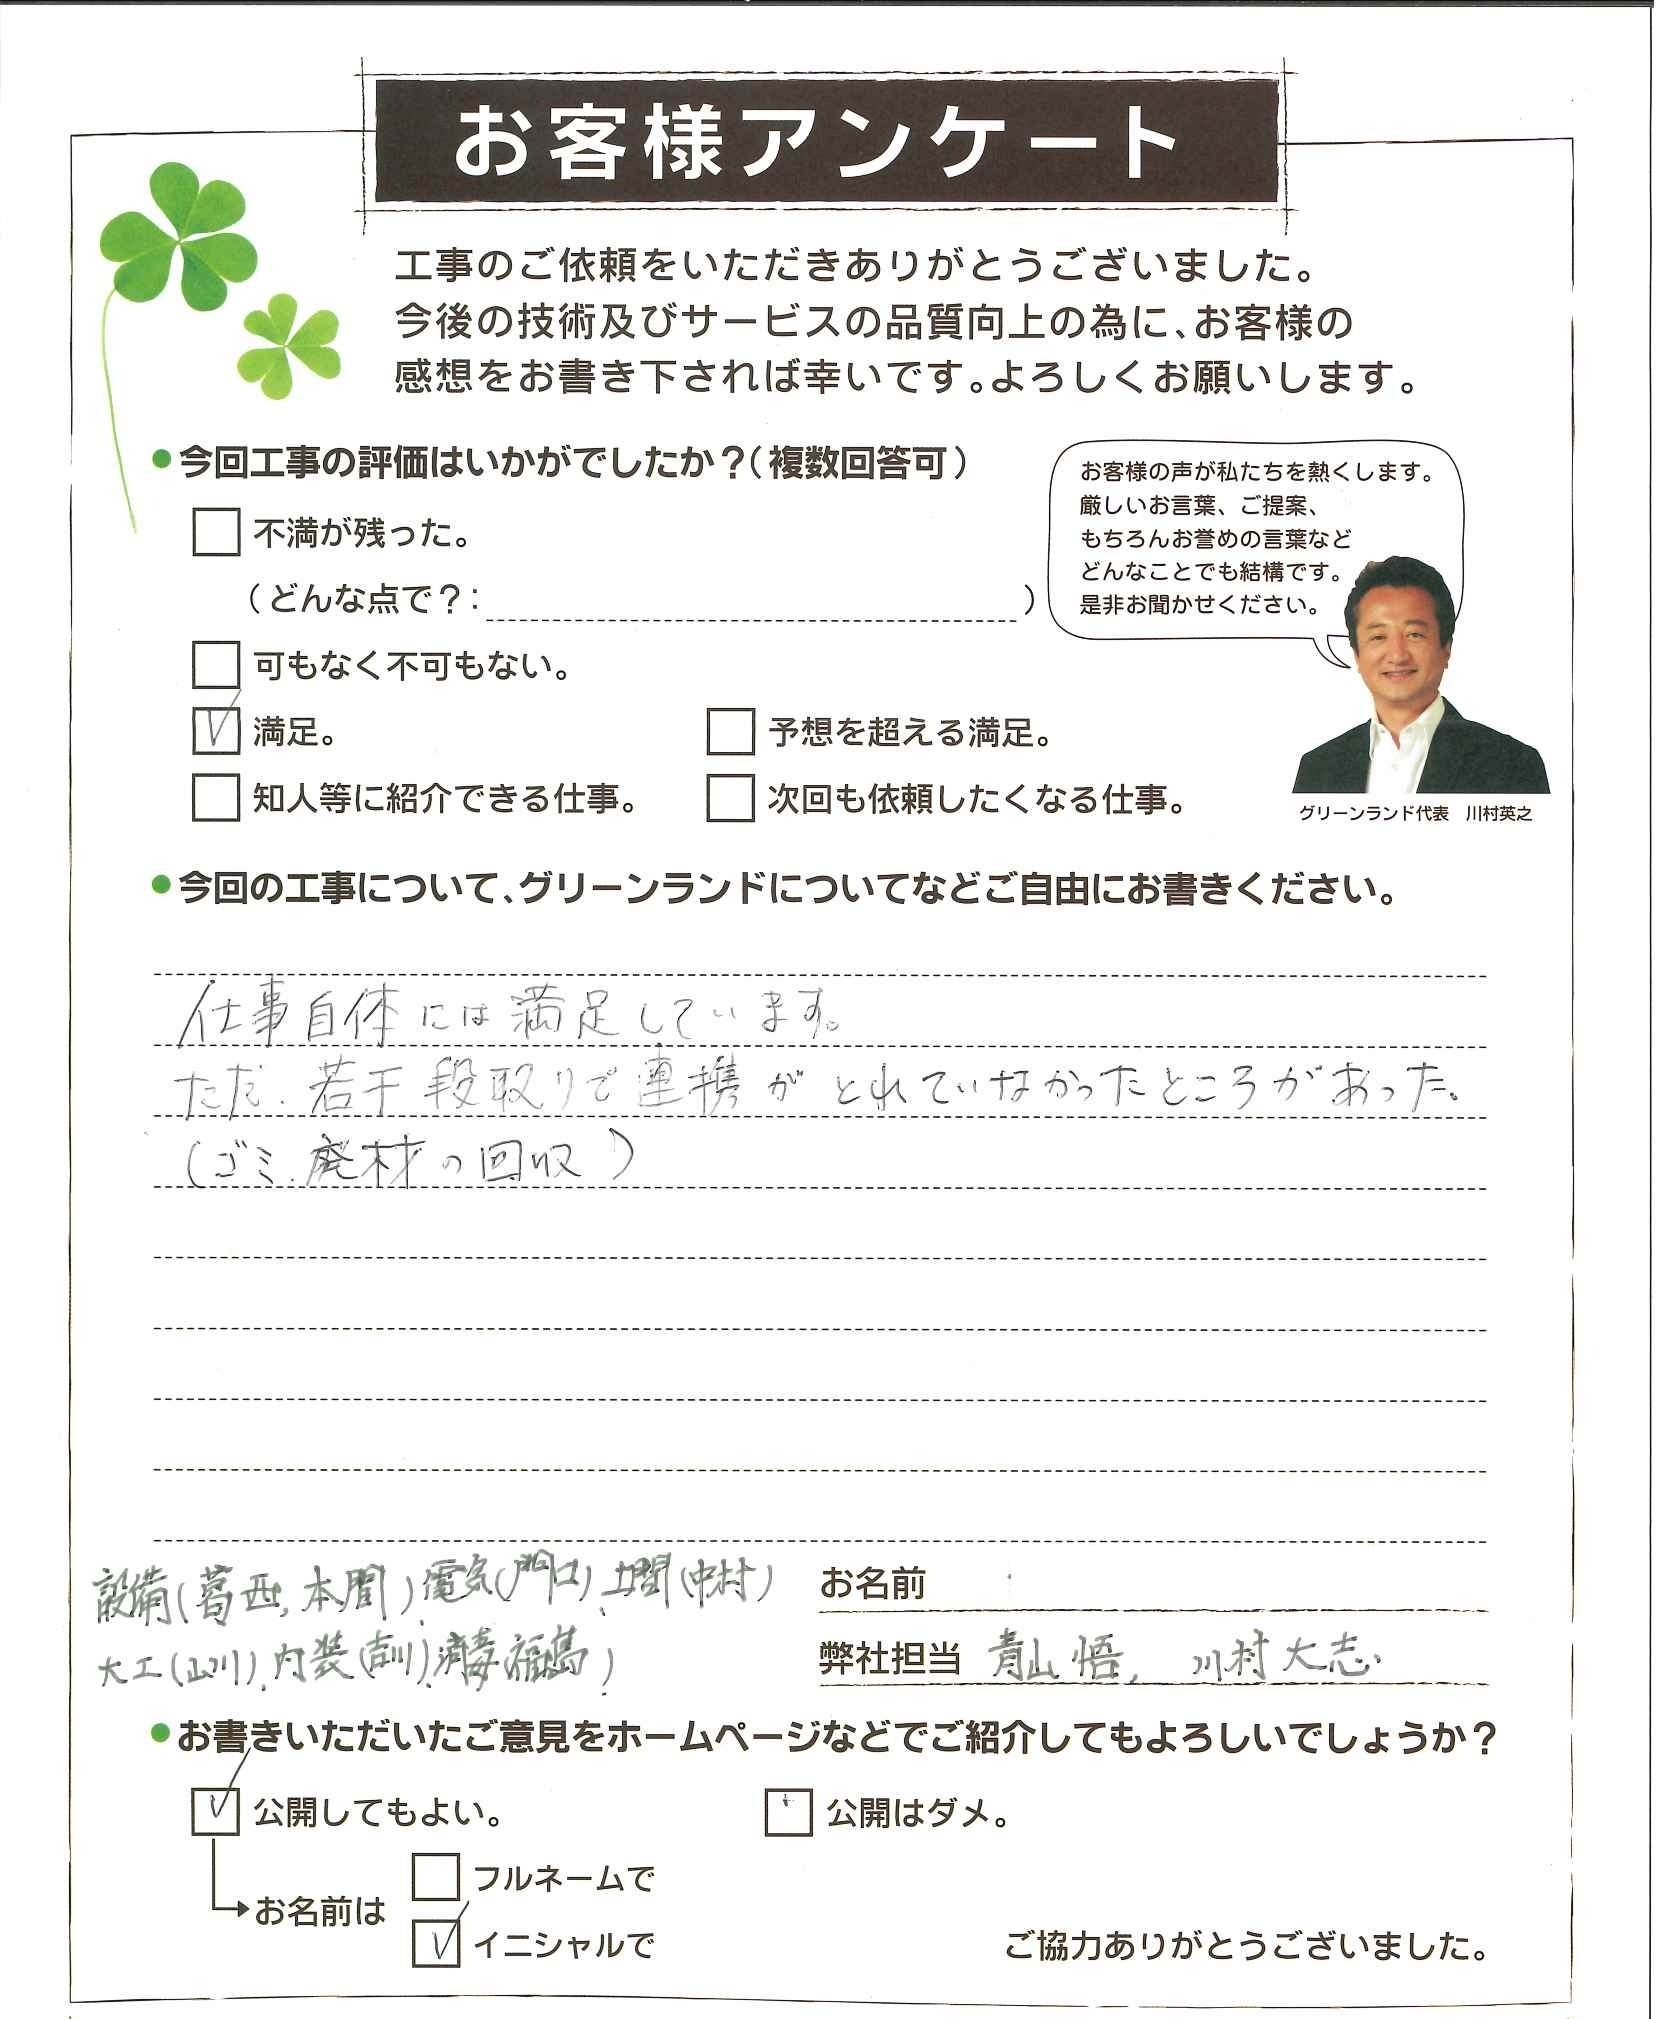 お客様アンケート
工事のご依頼をいただきありがとうございました。
今後の技術及びサービスの品質向上の為に、お客様の
感想をお書き下されば幸いです。よろしくお願いします。
●今回工事の評価はいかがでしたか？（複数回答可）
不満が残った。
（どんな点で？：　　　）
可もなく不可もない。
満足。
予想を超える満足。
知人等に紹介できる仕事。
次回も依頼したくなる仕事。
お客様の声が私たちを熱くします。
厳しいお言葉、ご提案、
もちろんお誉めの言葉など
どんなことでも結構です。
是非お聞かせください。
グリーンランド代表　川村英之
●今回の工事について、グリーンランドについてなどご自由にお書きください。
仕事自体には満足しています。
ただ、若干段取りで連携がとれていなかったところがあった。
（ゴミ、廃材の回収）
設備（葛西、本間）、電気（門口）、土間（中村）
大工（山川）、内装（吉川）、消毒（福島）
お名前
弊社担当　青山悟、川村大志
●お書きいただいたご意見をホームページなどでご紹介してもよろしいでしょうか？
公開してもよい。
公開はダメ。
お名前は
フルネームで
イニシャルで
ご協力ありがとうございました。